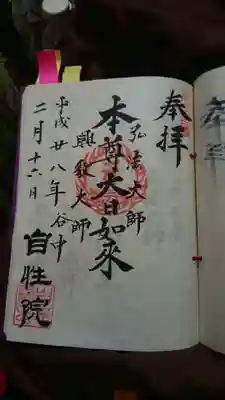 奉拝
弘法大師
本尊大日如來
興教大師
平成廿八年谷中
二月十六日
自性院